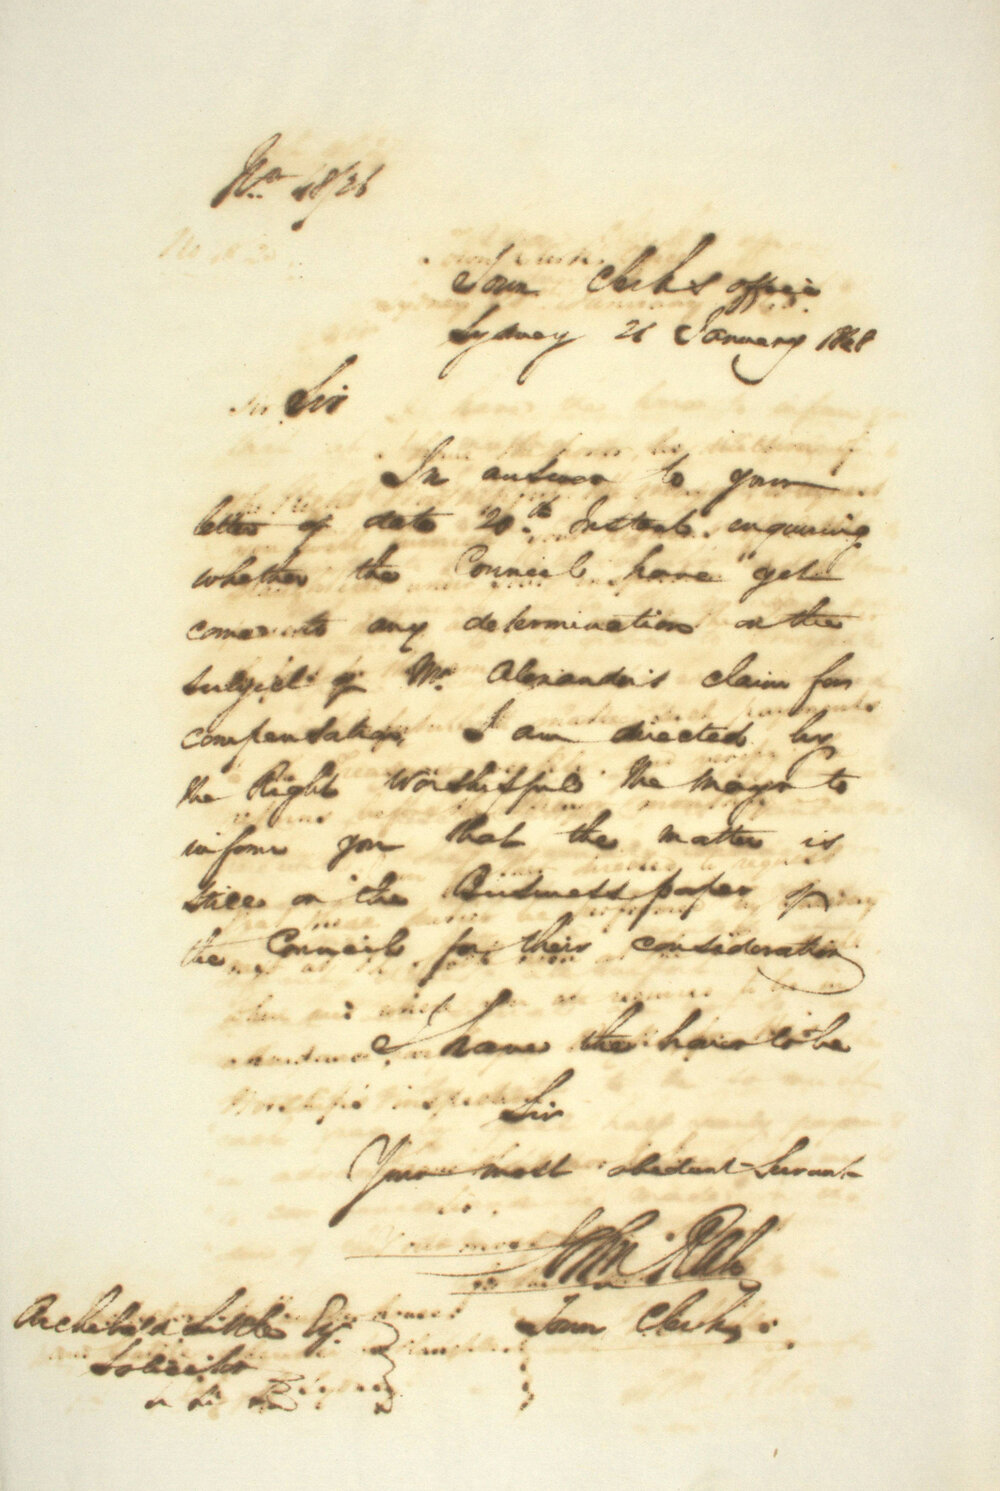 No. 48/26
Town Clerk's office
Sydney 26 January 1848
Sir
In answer to your
letter of date 20th Instant enquiring
whether the Council have yet
come to any determination on the
subject of Mr. Alexander's claim for
compensation, I am directed by
the Right Worshipful the Mayor to
inform you that the matter is
still on the Business paper of
the Council for their consideration
I have the honor to be
Sir
Your most obedient Servant
John Rae
Town Clerk
Archibald Little Esq
Solicitor